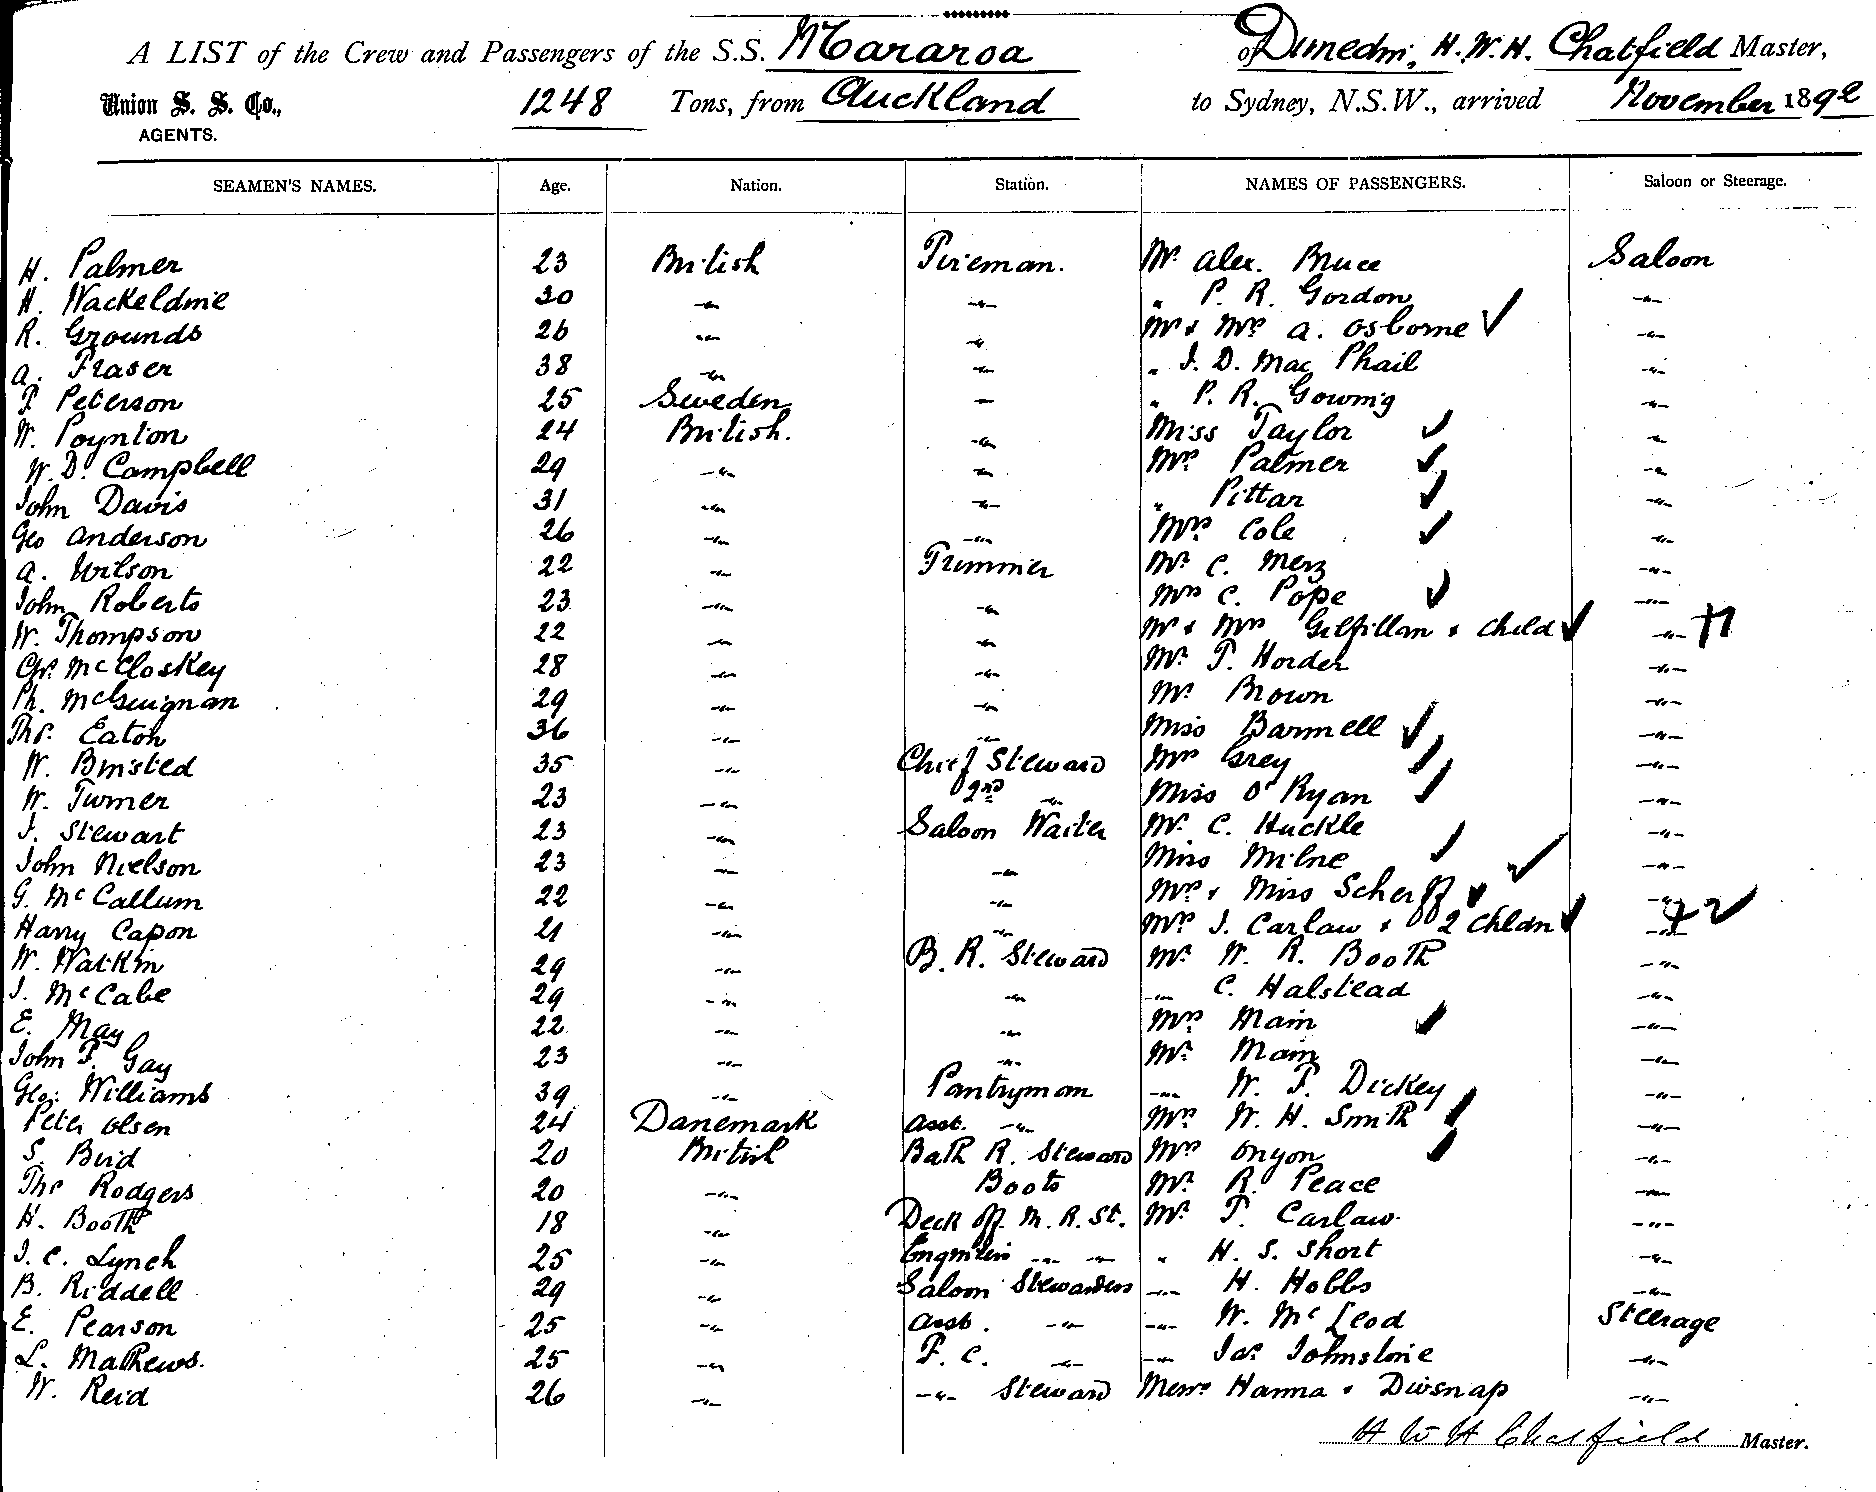 A LIST of the Crew and Passengers of the S.S. Mararoa of Dunedin, H. W. H. Chatfield Master,
Union S. S. Co., 1248 Tons, from Auckland to Sydney, N.S.W., arrived November 1892
AGENTS.
SEAMEN'S NAMES. Age. Nation. Station. NAMES OF PASSENGERS. Saloon or Steerage.
H. Palmer 23 British Fireman. Mr. Alex. Bruce Saloon
H. Wackeldine 30 -"- -"- " P. R. Gordon -"-
R. Grounds 26 -"- -"- Mr & Mrs A. Osborne ✓ -"-
A. Fraser 38 -"- -"- " J. D. Mac Phail -"-
P. Peterson 25 Sweden - " P. R. Gowing -"-
W. Poynton 24 British. -"- Miss Taylor ✓ -"-
W. D. Campbell 29 -"- -"- Mrs Palmer ✓ -"-
John Davis 31 -"- -"- " Pittar ✓ -"-
Geo Anderson 26 -"- -"- Mrs Cole ✓ -"-
A. Wilson 22 -"- Trimmer Mr. C. Merz -"-
John Roberts 23 -"- -"- Mrs C. Pope ✓ -"-
W. Thompson 22 -"- -"- Mr & Mrs Gilfillan & child ✓ -"-
Chs. McCloskey 28 -"- -"- Mr. T. Horder -"-
Ph. McGuignan 29 -"- -"- Mr Brown -"-
Ths. Eaton 36 -"- -"- Miss Barmell ✓ -"-
W. Binsted 35 -"- Chief Steward Mrs Grey ✓ -"-
W. Turner 23 -"- 2nd -"- Miss O'Ryan ✓ -"-
J. Stewart 23 -"- Saloon Waiter Mr. C. Huckle -"-
John Nielson 23 -"- -"- Miss Milne ✓ ✓ -"-
G. McCallum 22 -"- -"- Mrs & Miss Scherff ✓ -"-
Harry Capon 21 -"- -"- Mrs J. Carlaw & 2 Chldn ✓ -"-
W. Watkin 29 -"- B. R. Steward Mr. W. R. Booth -"-
J. McCabe 29 -"- -"- -"- C. Halstead -"-
E. May 22 -"- -"- Mrs Main ✓ -"-
John F. Gay 23 -"- -"- Mr. Main -"-
Geo. Williams 39 -"- Pantryman -"- W. T. Dickey -"-
Peter Olsen 24 Danemark Asst. -"- Mrs W. H. Smith ✓ -"-
S. Bird 20 British Bath R. Steward Mrs Onyon ✓ -"-
Ths Rodgers 20 -"- Boots Mr. R. Peace -"-
H. Booth 18 -"- Deck Off. M. R. St. Mr. T. Carlaw -"-
J. C. Lynch 25 -"- -"- -"- " H. S. Short -"-
B. Riddell 29 -"- Saloon Stewardess -"- H. Hobbs -"-
E. Pearson 25 -"- Asst. -"- -"- W. McLeod Steerage
L. Mathews. 25 -"- F. C. -"- -"- Jas Johnstone -"-
W. Reid 26 -"- -"- Steward Messrs Hanna & Divsnap -"-
H W H Chatfield Master.